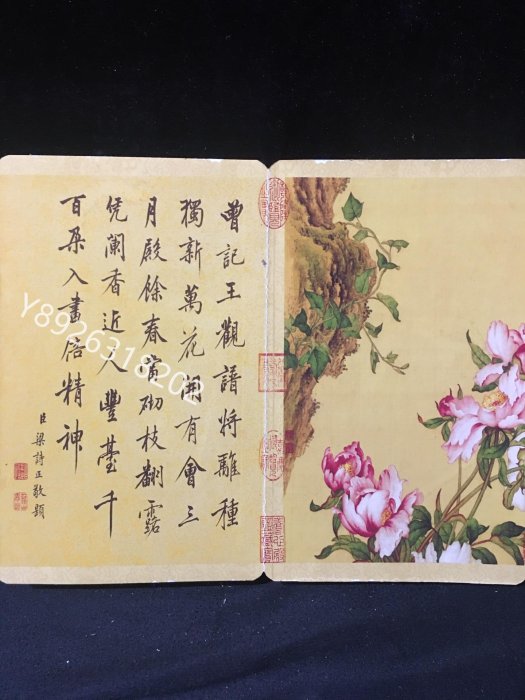 曾記王觀譜將離種
獨新萬花開有會三
月殿餘春當砌枝翻露
凭闌香近人豐臺千
百朵入畫倍精神
臣梁詩正敬題
Y8926318202